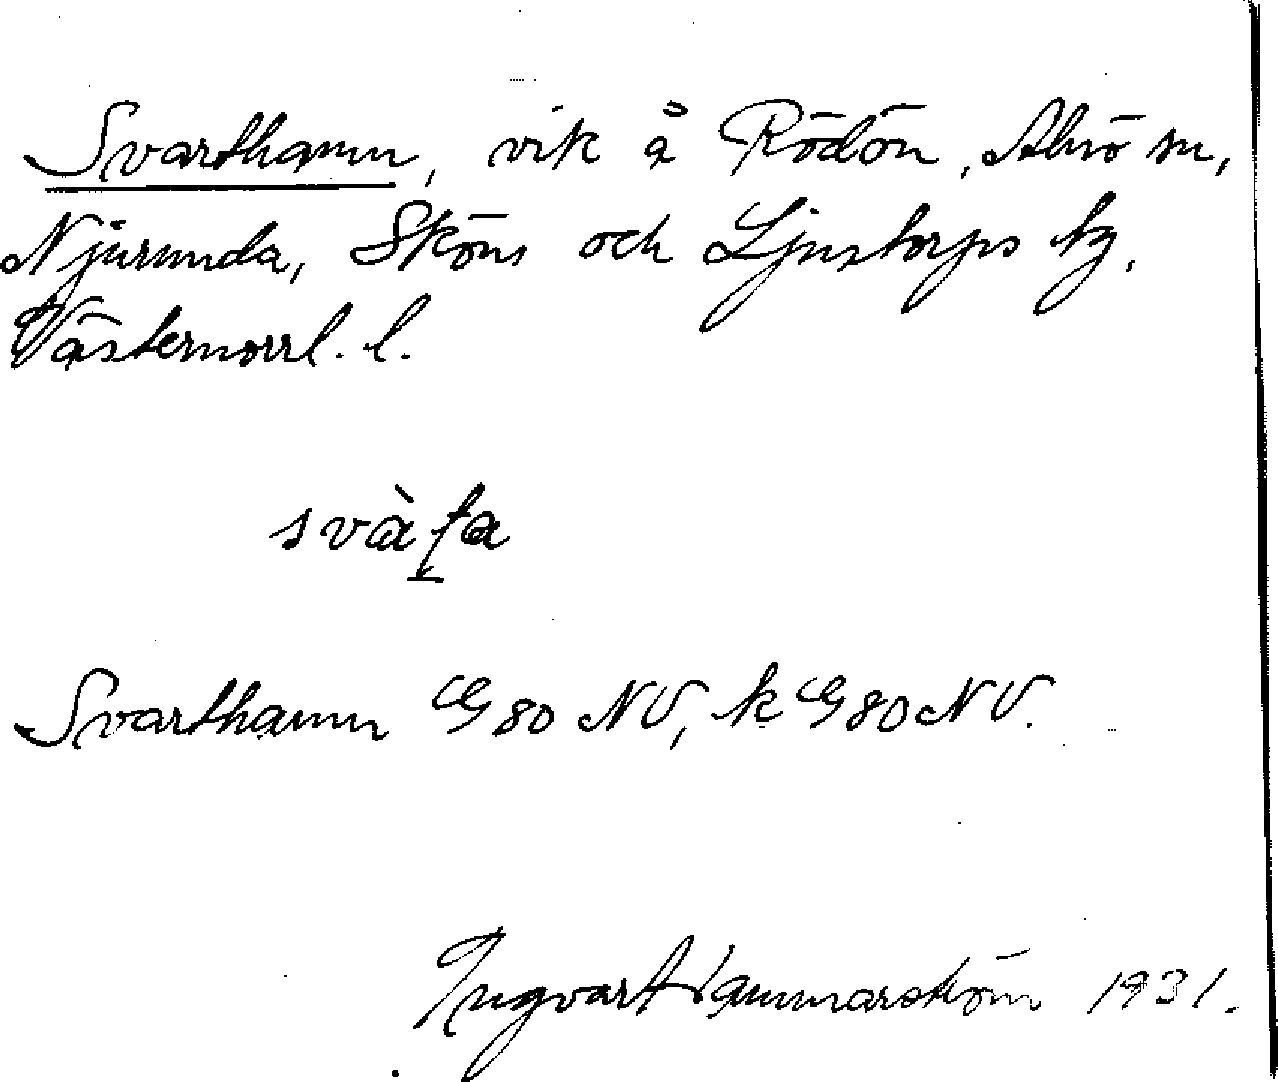 Svarthamn, vik å Rödön, Alnö sn,
Njurunda, Sköns och Ljustorps tg,
Västernorrl. l.
svàta
Svarthamn G80 NV, k G80 NV.
Ingvart Hammarström 1931.